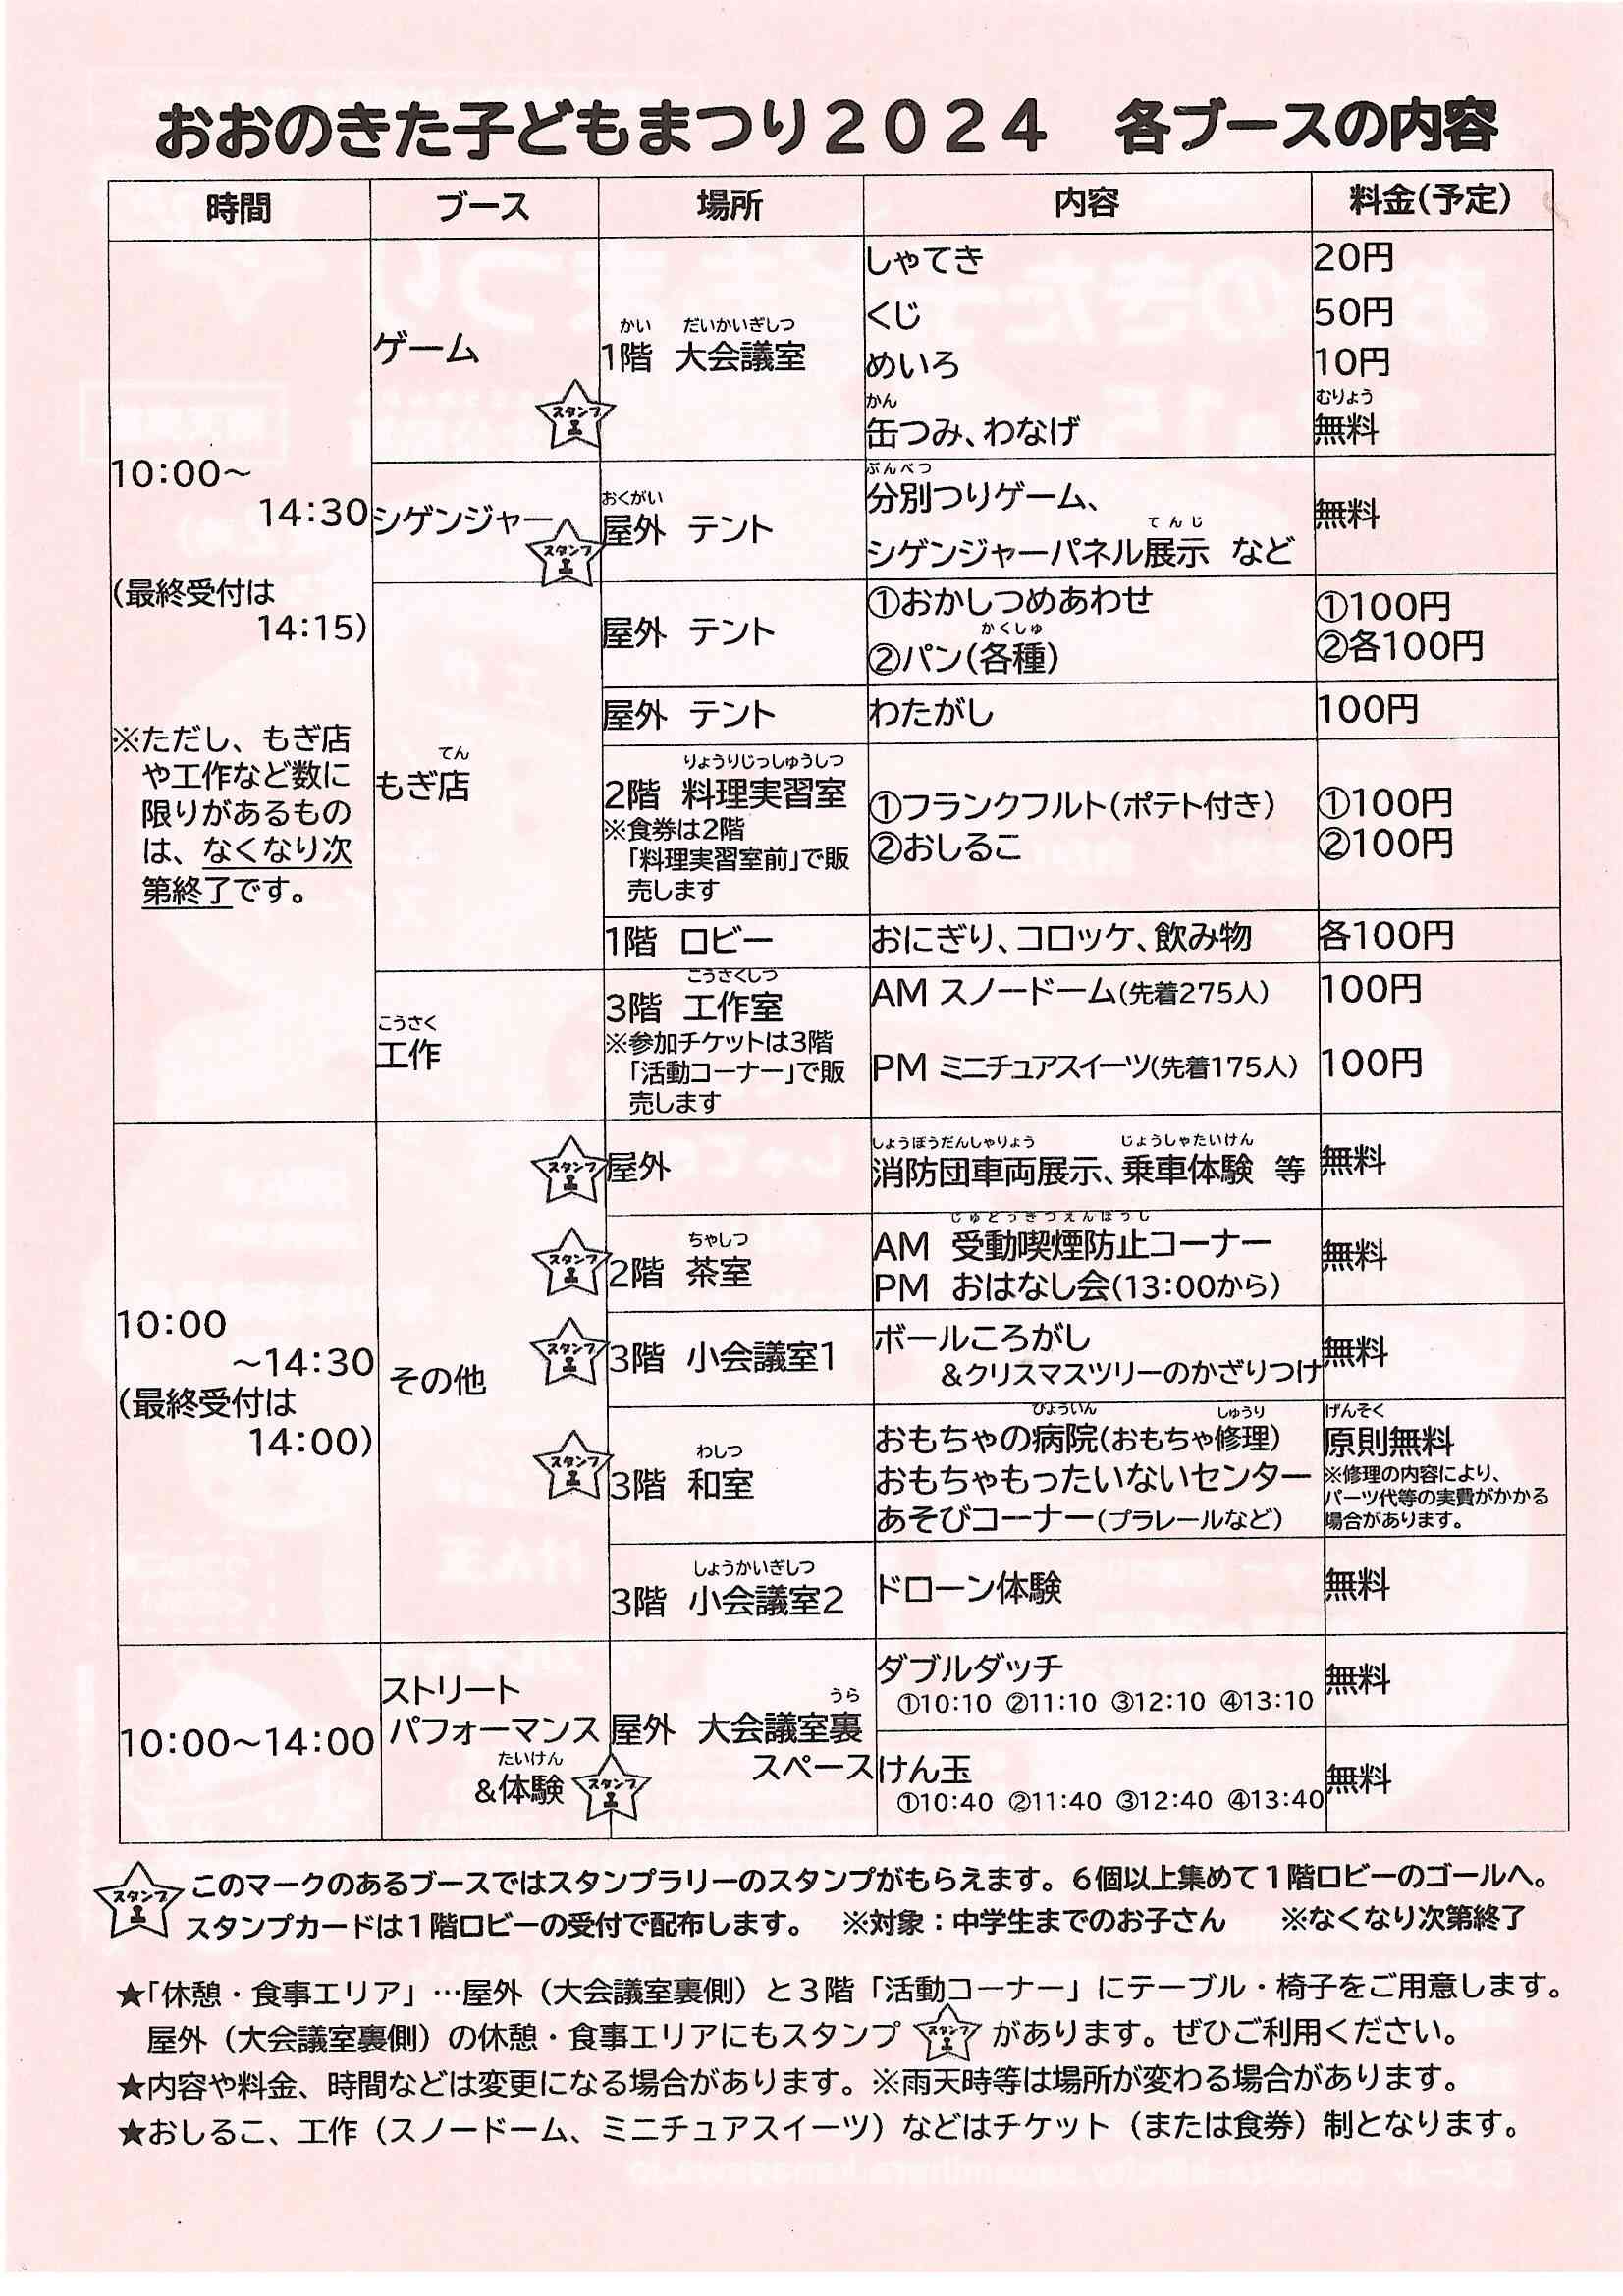 おおのきた子どもまつり２０２４　各ブースの内容
時間 ブース 場所 内容 料金(予定)
10:00～
14:30
(最終受付は
14:15)
※ただし、もぎ店
や工作など数に
限りがあるもの
は、なくなり次
第終了です。
ゲーム
スタンプ
かい だいかいぎしつ
1階 大会議室
しゃてき 20円
くじ 50円
めいろ 10円
かん むりょう
缶つみ、わなげ 無料
シゲンジャー
スタンプ
おくがい
屋外 テント
ぶんべつ
分別つりゲーム、
てんじ
シゲンジャーパネル展示 など
無料
てん
もぎ店
屋外 テント
①おかしつめあわせ ①100円
かくしゅ
②パン(各種) ②各100円
屋外 テント わたがし 100円
りょうりじっしゅうしつ
2階 料理実習室
※食券は2階
「料理実習室前」で販
売します
①フランクフルト(ポテト付き) ①100円
②おしるこ ②100円
1階 ロビー おにぎり、コロッケ、飲み物 各100円
こうさく
工作
こうさくしつ
3階 工作室
※参加チケットは3階
「活動コーナー」で販
売します
AM スノードーム(先着275人) 100円
PM ミニチュアスイーツ(先着175人) 100円
10:00
～14:30
(最終受付は
14:00)
その他
スタンプ
屋外
しょうぼうだんしゃりょう じょうしゃたいけん
消防団車両展示、乗車体験 等 無料
スタンプ
ちゃしつ
2階 茶室
じゅどうきつえんぼうし
AM 受動喫煙防止コーナー
PM おはなし会(13:00から)
無料
スタンプ
3階 小会議室1
ボールころがし
&クリスマスツリーのかざりつけ
無料
スタンプ
わしつ
3階 和室
びょういん しゅうり
おもちゃの病院(おもちゃ修理)
おもちゃもったいないセンター
あそびコーナー(プラレールなど)
げんそく
原則無料
※修理の内容により、
パーツ代等の実費がかかる
場合があります。
しょうかいぎしつ
3階 小会議室2
ドローン体験 無料
10:00～14:00
ストリート
パフォーマンス
たいけん
&体験
スタンプ
うら
屋外 大会議室裏
スペース
ダブルダッチ
①10:10 ②11:10 ③12:10 ④13:10
無料
けん玉
①10:40 ②11:40 ③12:40 ④13:40
無料
スタンプ
このマークのあるブースではスタンプラリーのスタンプがもらえます。６個以上集めて１階ロビーのゴールへ。
スタンプカードは１階ロビーの受付で配布します。 ※対象：中学生までのお子さん ※なくなり次第終了
★「休憩・食事エリア」…屋外（大会議室裏側）と３階「活動コーナー」にテーブル・椅子をご用意します。
屋外（大会議室裏側）の休憩・食事エリアにもスタンプ スタンプ があります。ぜひご利用ください。
★内容や料金、時間などは変更になる場合があります。※雨天時等は場所が変わる場合があります。
★おしるこ、工作（スノードーム、ミニチュアスイーツ）などはチケット（または食券）制となります。